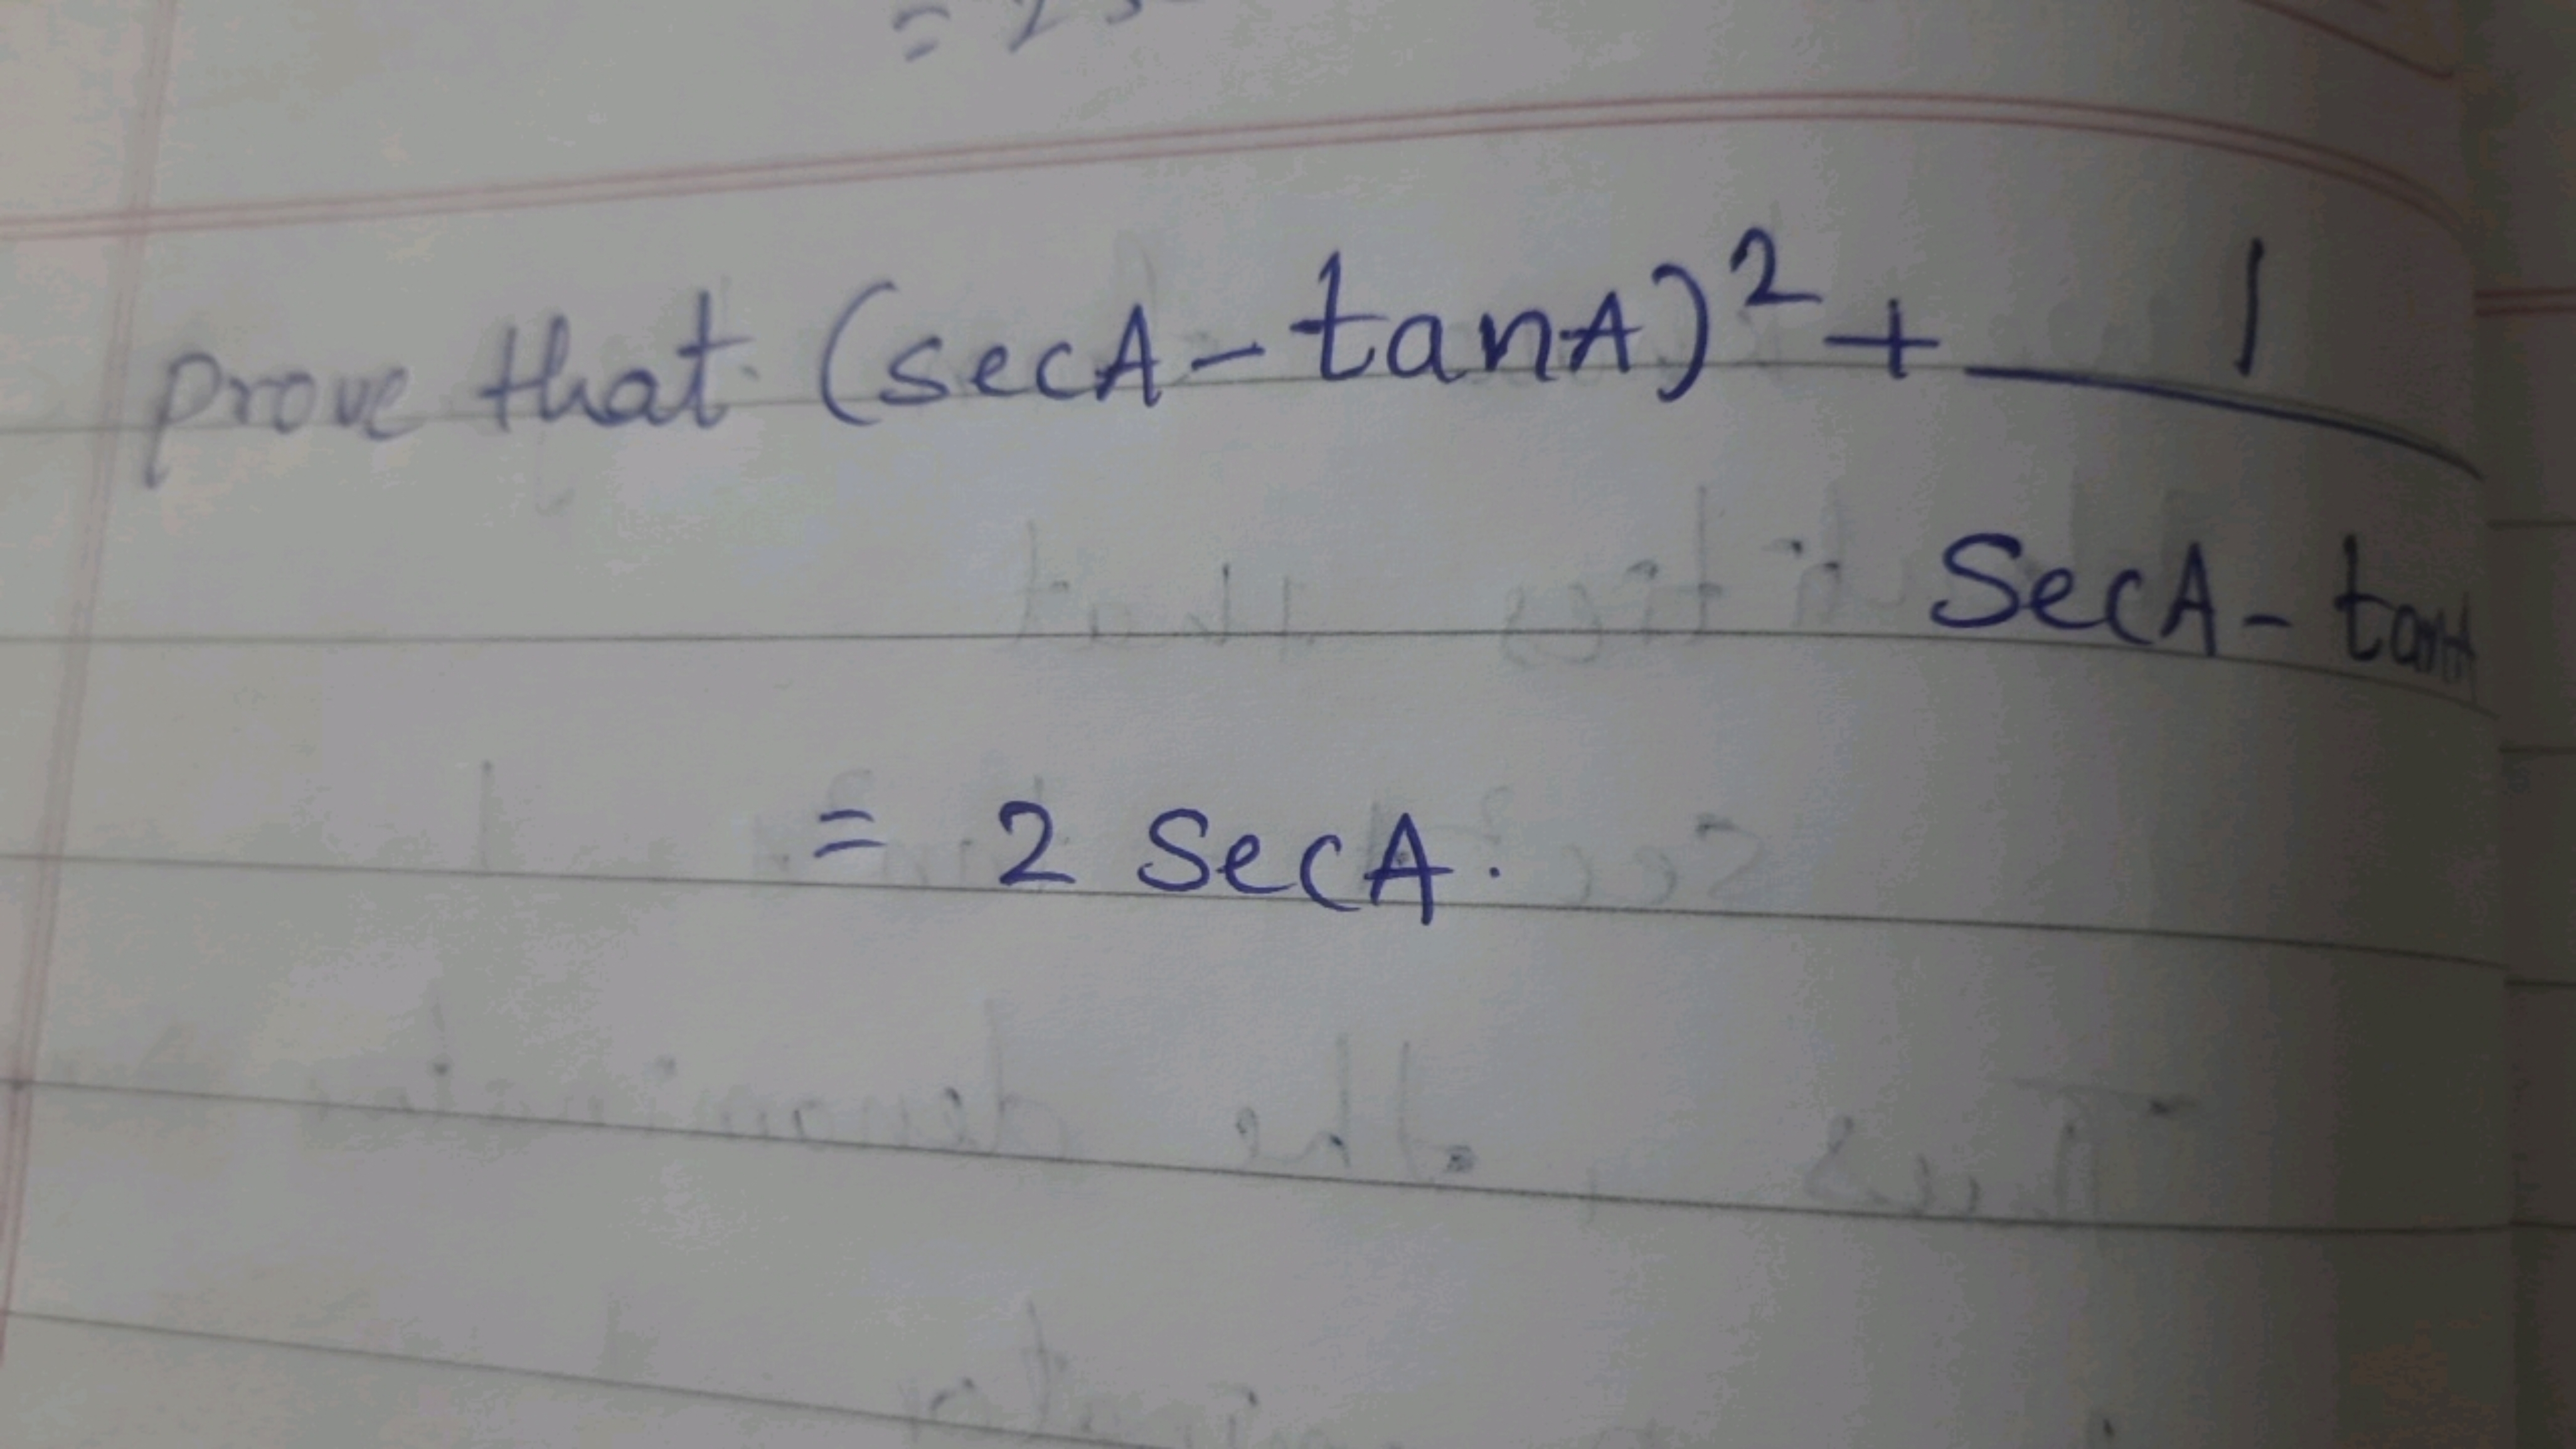 prove that (secA - tanA)² + 1
SecA - tanA
= 2 SecA.